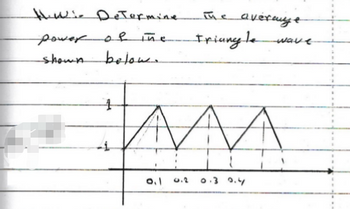 H.W:- Determine the average
power of the triangle wave
shown below.
1
-1
0.1 0.2 0.3 0.4